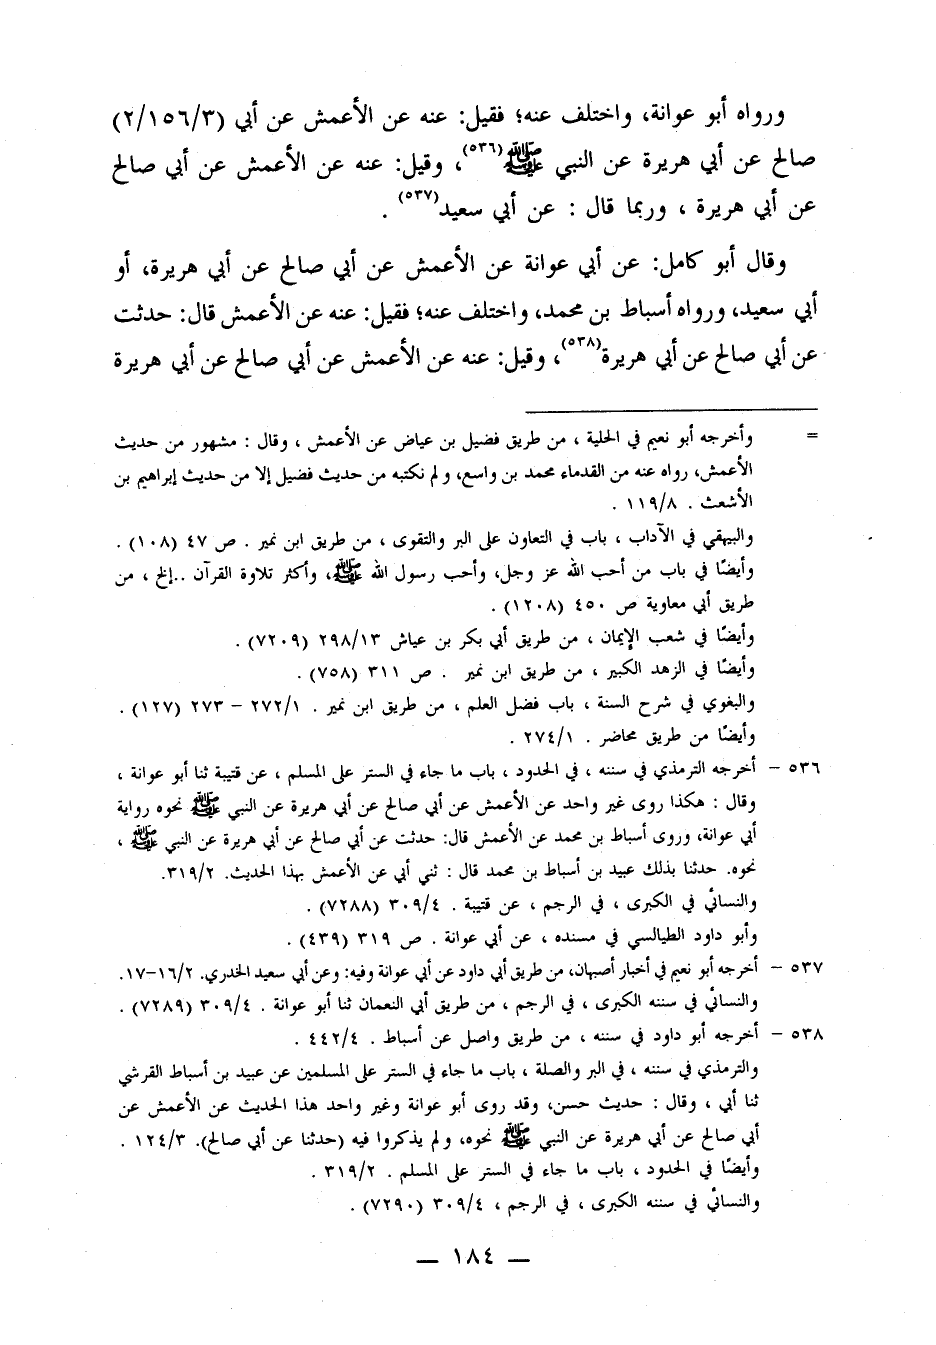 ورواه أبو عوانة، واختلف عنه؛ فقيل: عنه عن الأعمش عن أبي (٢/١٥٦/٣)
صالح عن أبي هريرة عن النبي ﷺ(٥٣٦)، وقيل: عنه عن الأعمش عن أبي صالح
عن أبي هريرة ، وربما قال : عن أبي سعيد(٥٣٧) .
وقال أبو كامل: عن أبي عوانة عن الأعمش عن أبي صالح عن أبي هريرة، أو
أبي سعيد، ورواه أسباط بن محمد، واختلف عنه؛ فقيل: عنه عن الأعمش قال: حدثت
عن أبي صالح عن أبي هريرة(٥٣٨)، وقيل: عنه عن الأعمش عن أبي صالح عن أبي هريرة
= وأخرجه أبو نعيم في الحلية ، من طريق فضيل بن عياض عن الأعمش ، وقال : مشهور من حديث
الأعمش، رواه عنه من القدماء محمد بن واسع، ولم نكتبه من حديث فضيل إلا من حديث إبراهيم بن
الأشعث . ١١٩/٨ .
والبيهقي في الآداب ، باب في التعاون على البر والتقوى ، من طريق ابن نمير . ص ٤٧ (١٠٨) .
وأيضًا في باب من أحب الله عز وجل، وأحب رسول الله ﷺ، وأكثر تلاوة القرآن ..إلخ ، من
طريق أبي معاوية ص ٤٥٠ (١٢٠٨) .
وأيضًا في شعب الإيمان ، من طريق أبي بكر بن عياش ٢٩٨/١٣ (٧٢٠٩) .
وأيضًا في الزهد الكبير ، من طريق ابن نمير . ص ٣١١ (٧٥٨) .
والبغوي في شرح السنة ، باب فضل العلم ، من طريق ابن نمير . ٢٧٢/١ – ٢٧٣ (١٢٧) .
وأيضًا من طريق محاضر . ٢٧٤/١ .
٥٣٦ – أخرجه الترمذي في سننه ، في الحدود ، باب ما جاء في الستر على المسلم ، عن قتيبة ثنا أبو عوانة ،
وقال : هكذا روى غير واحد عن الأعمش عن أبي صالح عن أبي هريرة عن النبي ﷺ نحوه رواية
أبي عوانة، وروى أسباط بن محمد عن الأعمش قال: حدثت عن أبي صالح عن أبي هريرة عن النبي ﷺ ،
نحوه. حدثنا بذلك عبيد بن أسباط بن محمد قال : ثني أبي عن الأعمش بهذا الحديث. ٣١٩/٢.
والنسائي في الكبرى ، في الرجم ، عن قتيبة . ٣٠٩/٤ (٧٢٨٨) .
وأبو داود الطيالسي في مسنده ، عن أبي عوانة . ص ٣١٩ (٤٣٩) .
٥٣٧ – أخرجه أبو نعيم في أخبار أصبهان، من طريق أبي داود عن أبي عوانة وفيه: وعن أبي سعيد الخدري. ١٦/٢–١٧.
والنسائي في سننه الكبرى ، في الرجم ، من طريق أبي النعمان ثنا أبو عوانة . ٣٠٩/٤ (٧٢٨٩) .
٥٣٨ – أخرجه أبو داود في سننه ، من طريق واصل عن أسباط . ٤٤٢/٤ .
والترمذي في سننه ، في البر والصلة ، باب ما جاء في الستر على المسلمين عن عبيد بن أسباط القرشي
ثنا أبي ، وقال : حديث حسن، وقد روى أبو عوانة وغير واحد هذا الحديث عن الأعمش عن
أبي صالح عن أبي هريرة عن النبي ﷺ نحوه، ولم يذكروا فيه (حدثنا عن أبي صالح). ١٢٤/٣ .
وأيضًا في الحدود ، باب ما جاء في الستر على المسلم . ٣١٩/٢ .
والنسائي في سننه الكبرى ، في الرجم ، ٣٠٩/٤ (٧٢٩٠) .
— ١٨٤ —